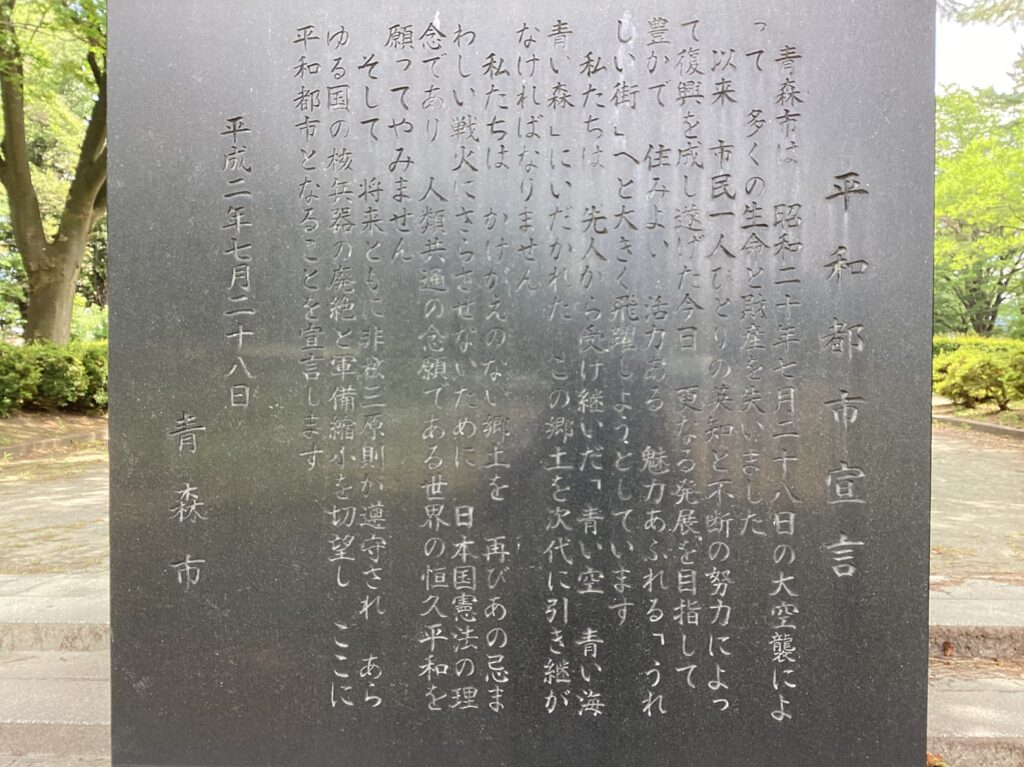 平和都市宣言
青森市は　昭和二十年七月二十八日の大空襲によ
って　多くの生命と財産を失いました
以来　市民一人ひとりの英知と不断の努力によっ
て復興を成し遂げた今日　更なる発展を目指して
豊かで　住みよい　活力ある　魅力あふれる「うれ
しい街」へと大きく飛躍しようとしています
私たちは　先人から受け継いだ「青い空　青い海
青い森」にいだかれた　この郷土を次代に引き継が
なければなりません
私たちは　かけがえのない郷土を　再びあの忌ま
わしい戦火にさらさせないために　日本国憲法の理
念であり　人類共通の念願である世界の恒久平和を
願ってやみません
そして　将来ともに非核三原則が遵守され　あら
ゆる国の核兵器の廃絶と軍備縮小を切望し　ここに
平和都市となることを宣言します
平成二年七月二十八日
青森市